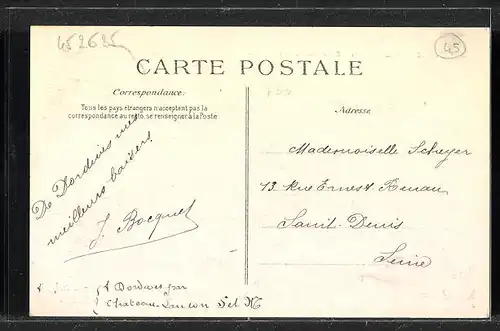 452625
45
CARTE POSTALE
Correspondance:
Tous les pays étrangers n'acceptent pas la
correspondance au recto, se renseigner à la Poste
De Dordives mes
meilleurs baisers!
J. Bocquet
à Dordives par
Chateau-Landon S et M
Adresse
Mademoiselle Schryer
13. Rue Ernest Renan
Saint-Denis
Seine